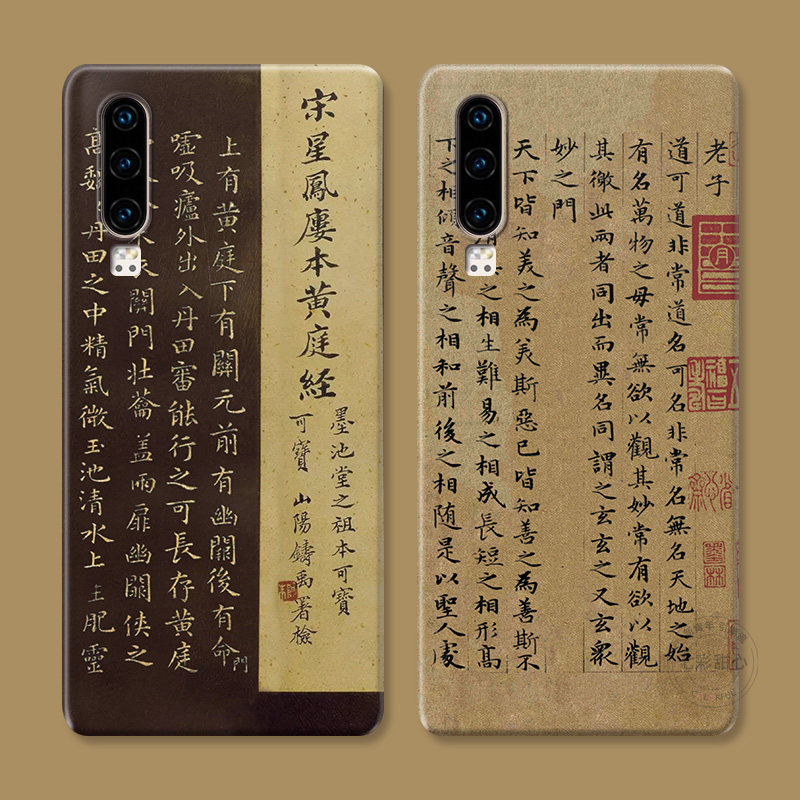 宋星鳳廔本黃庭経
墨池堂之祖本可寶
可寶 山陽鑄禹署檢
上有黃庭下有關元前有幽闕後有命門
噓吸廬外出入丹田審能行之可長存黃庭
衣關門壯蘥蓋兩扉幽闕俠之
高巍丹田之中精氣微玉池清水上生肥靈
老子
道可道非常道名可名非常名無名天地之始
有名萬物之母常無欲以觀其妙常有欲以觀
其徼此兩者同出而異名同謂之玄玄之又玄眾
妙之門
天下皆知美之為美斯惡已皆知善之為善斯不
之相生難易之相成長短之相形高
下之相傾音聲之相和前後之相隨是以聖人處
彩甜心